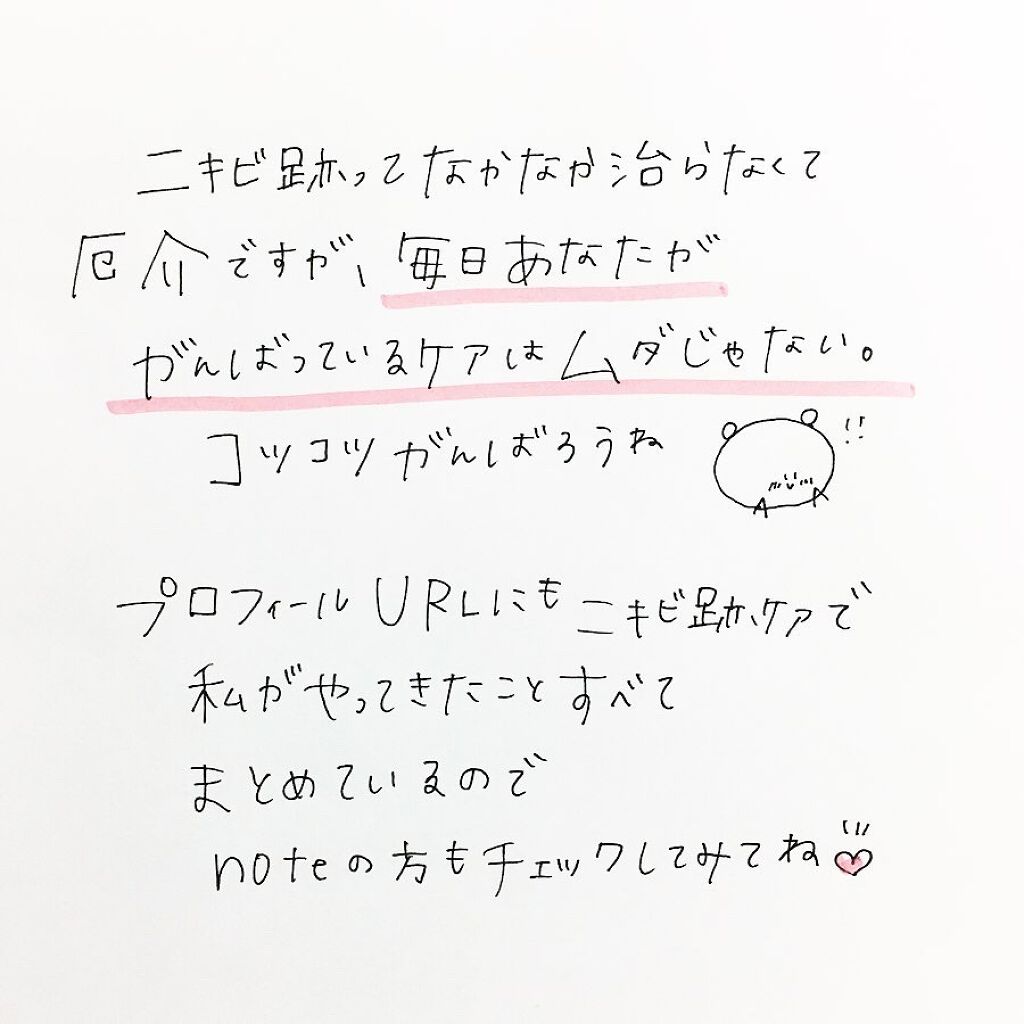 ニキビ跡ってなかなか治らなくて
厄介ですが、毎日あなたが
がんばっているケアはムダじゃない。
コツコツがんばろうね !!
プロフィールURLにもニキビ跡ケアで
私がやってきたことすべて
まとめているので
noteの方もチェックしてみてね